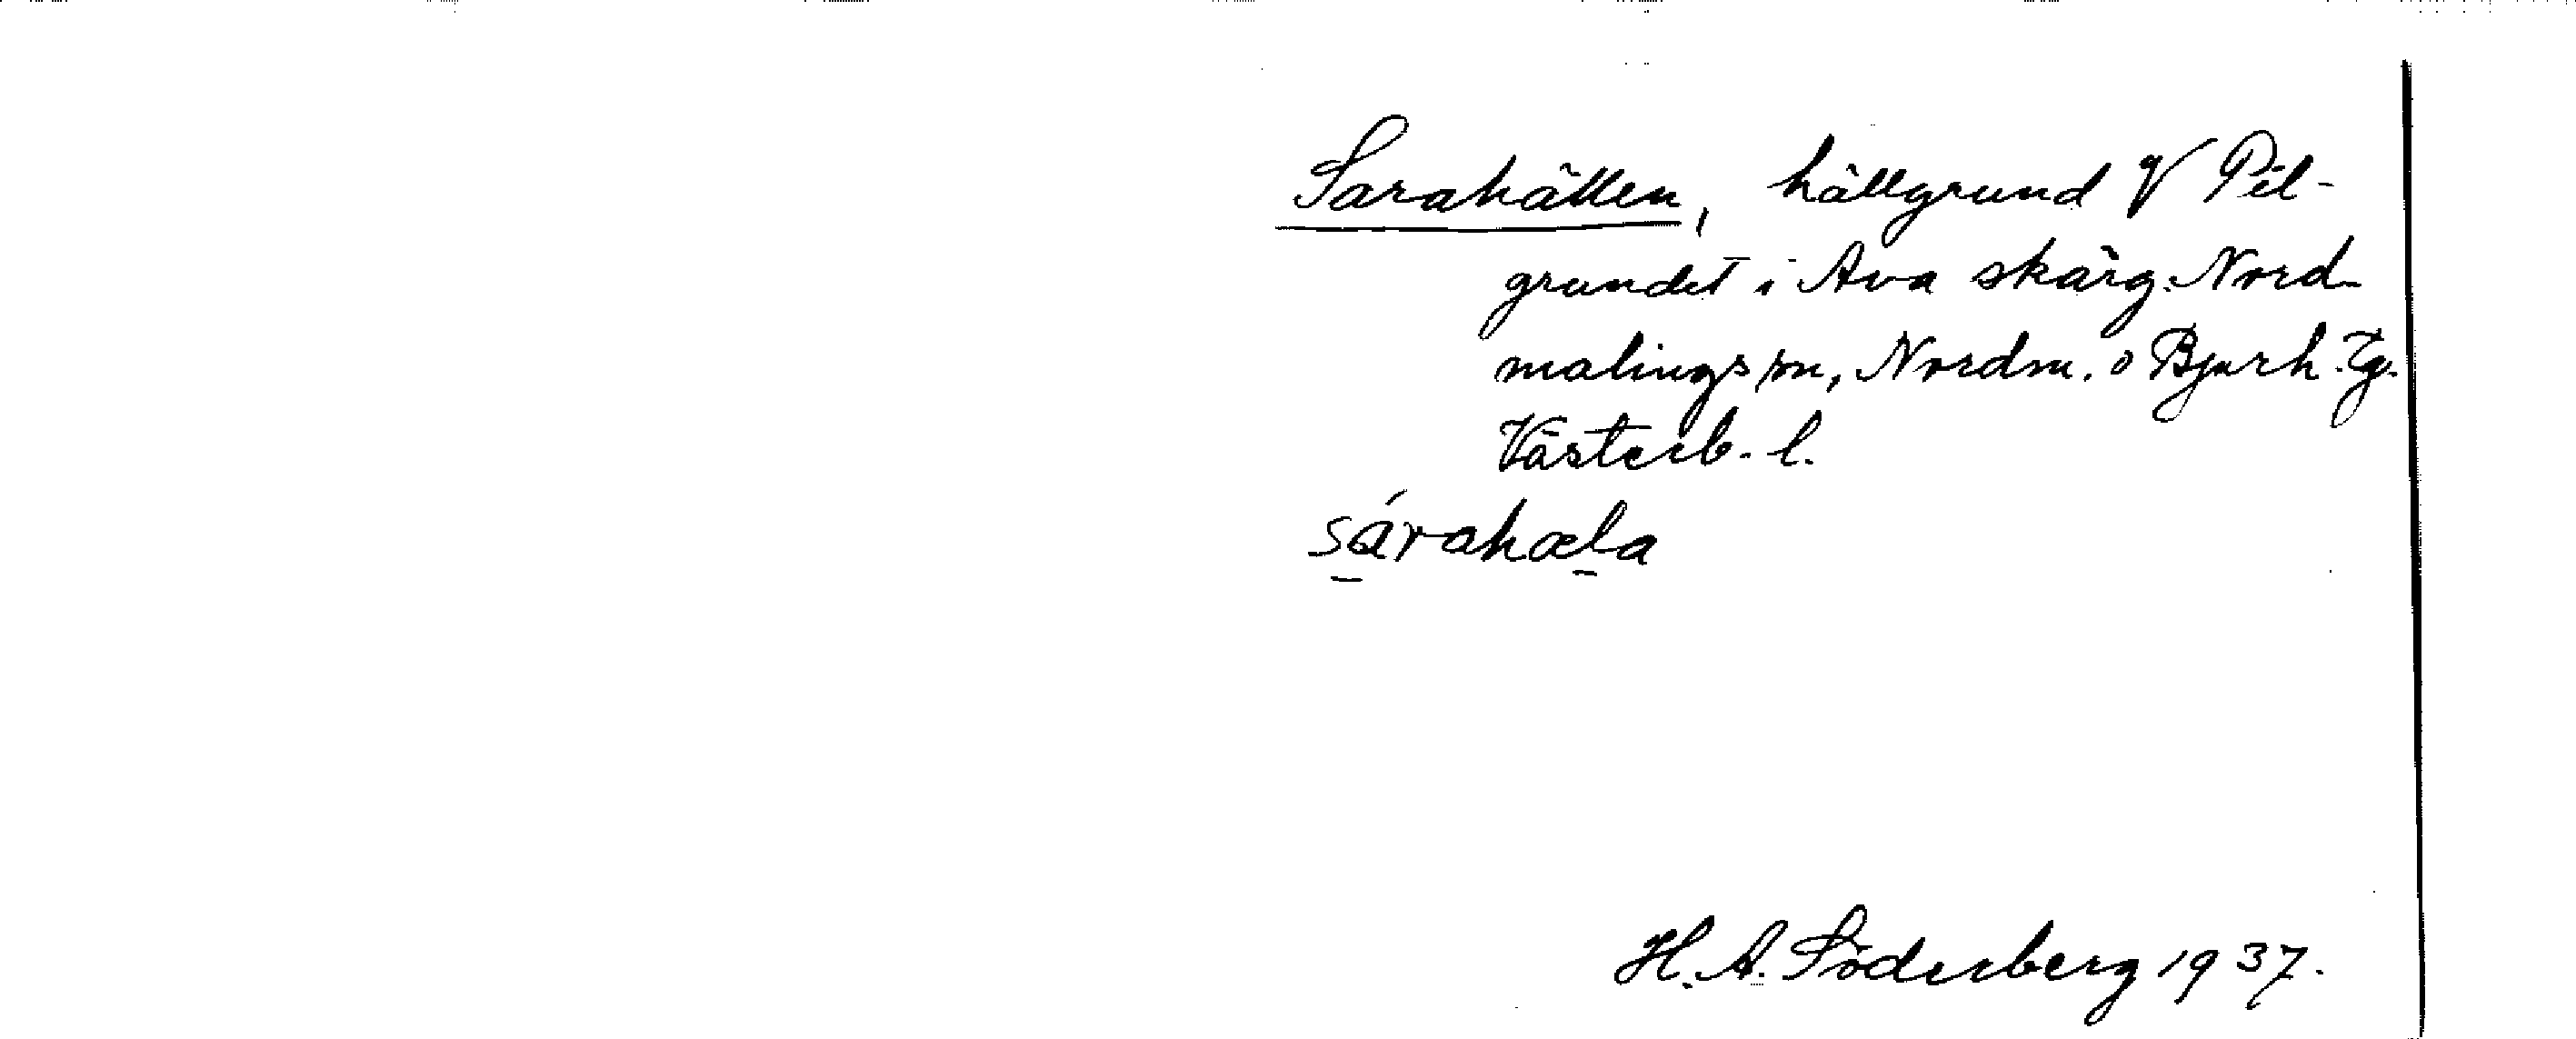 Sarahällen, hällgrund V Pèl-
grundet i Ava skärg. Nord-
malings sn, Nordm. o Bjurh. tg.
Västerb. l.
sárahæla
H. A. Söderberg 1937.